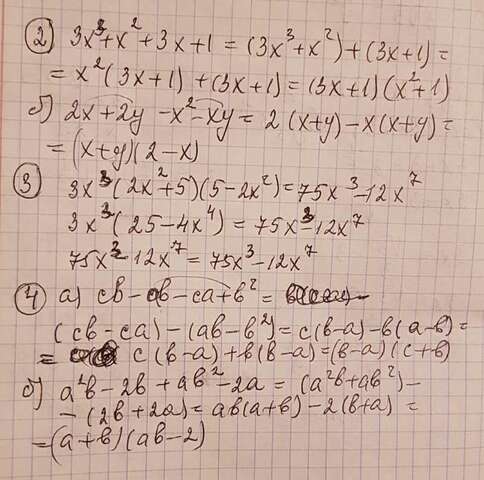 ② 3x³+x²+3x+1 = (3x³+x²)+(3x+1)=
= x²(3x+1)+(3x+1)=(3x+1)(x²+1)
б) 2x+2y-x²-xy= 2(x+y)-x(x+y)=
= (x+y)(2-x)
③ 3x³(2x²+5)(5-2x²)=75x³-12x⁷
3x³(25-4x⁴)=75x³-12x⁷
75x³-12x⁷=75x³-12x⁷
④ а) cв-aв-ca+в²=
(cв-ca)-(aв-в²)=c(в-a)-в(a-в)=
= c(в-a)+в(в-a)=(в-a)(c+в)
б) a²в-2в+aв²-2a=(a²в+aв²)-
-(2в+2a)=aв(a+в)-2(в+a)=
=(a+в)(aв-2)